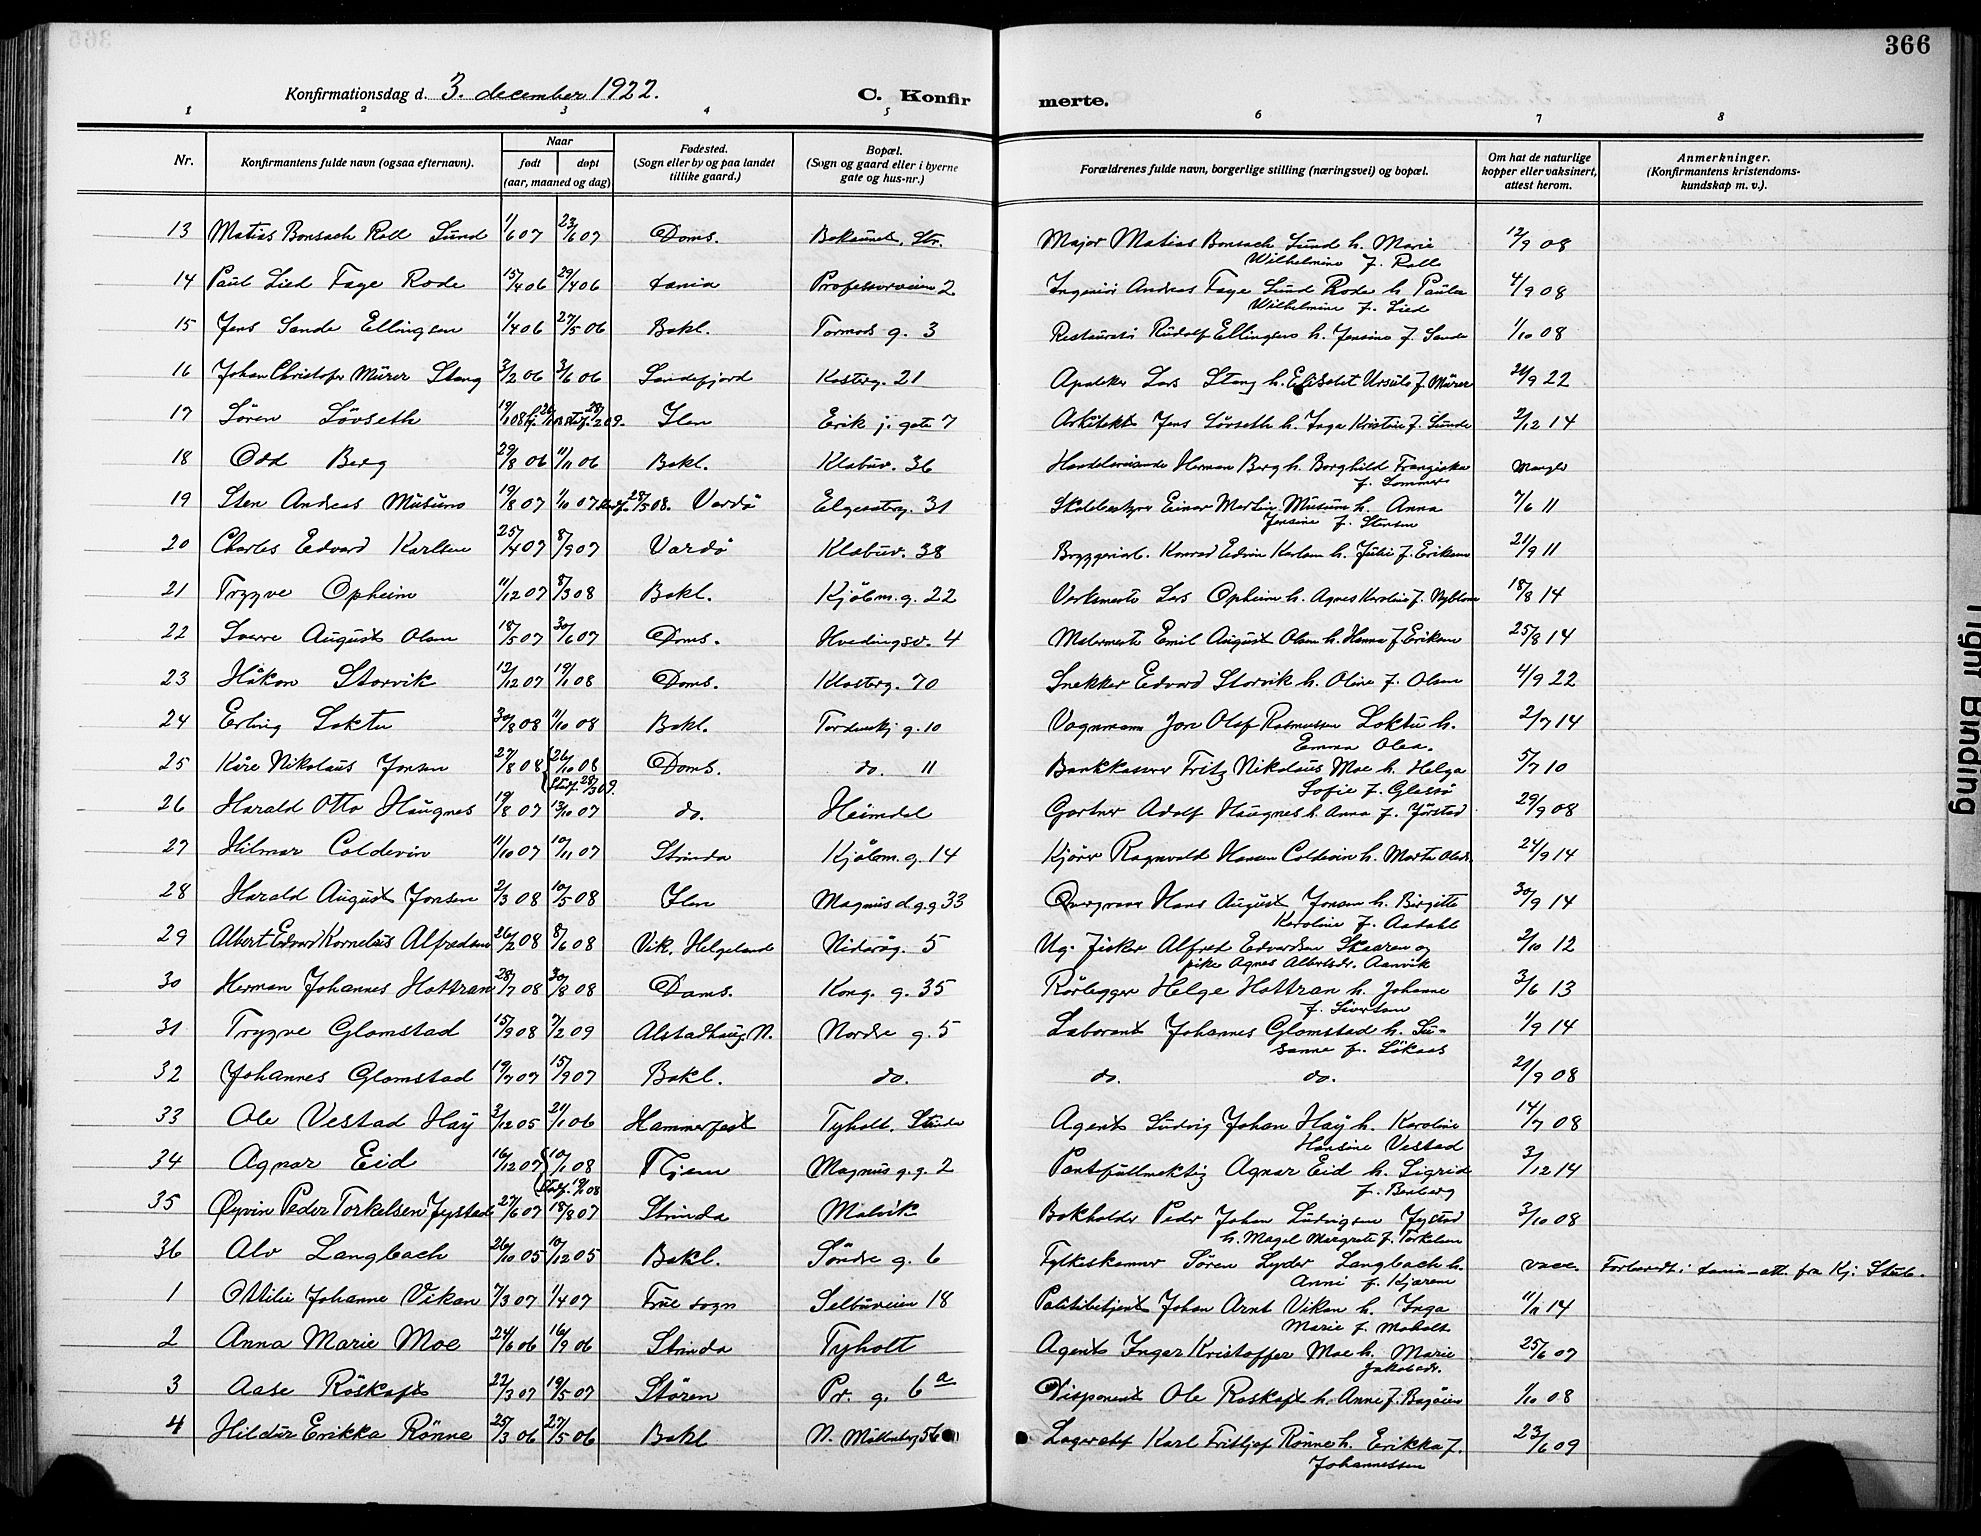 366
Konfirmationsdag d. 3. december 1922.
C. Konfirmerte.
1 2 3 4 5 6 7 8
Nr.
Konfirmantens fulde navn (ogsaa efternavn).
Naar
født døpt
(aar, maaned og dag)
Fødested.
(Sogn eller by og paa landet
tillike gaard.)
Bopæl.
(Sogn og gaard eller i byerne
gate og hus-nr.)
Forældrenes fulde navn, borgerlige stilling (næringsvei) og bopæl.
Om hat de naturlige
kopper eller vaksinert,
attest herom.
Anmerkninger.
(Konfirmantens kristendoms-
kundskap m. v.).
13 Matias Bonsach Roll Lund 1/6 07 23/6 07 Doms. Major Matias Bonsach Lund h. Marie 12/9 08
Wilhelmine f. Rolle
14 Paul Lied Faye Rode 15/4 06 29/4 06 Professorveien 2 Ingeniør Andreas Faye Lund Rode h. Paula 4/9 08
Wilhelmine f. Lied
15 Jens Sande Ellingsen 1/4 06 27/5 06 Bakl. Tormods g. 3 Restauratør Rudolf Ellingsen h. Jensine f. Sande 1/10 08
16 Johan Christofer Mürer Stang 3/2 06 3/6 06 Sandefjord Kosterg. 21 Apoteker Lars Stang h. Elisabet Ursula f. Mürer 22
17 Sören Lövseth Ilen Erik j. gate 7 Arkitekt Jens Lövseth h. Inga Kristine f. Sunde 2/12 14
18 Odd Berg 29/8 06 11/11 06 Bakl. Klæbuv. 36 Handelsreisende Herman Berg h. Borghild Franziska mangler
f. Sommer
19 Sten Andreas Musums 19/8 07 1/10 07 28/5 08. Vardö Elgeseterg. 31 Skolebestyrer Einar Martin Musum h. Anna 7/6 11
Jensine f. Stensen
20 Charles Edvard Karlsen 25/4 07 8/9 07 Vardö Klæbuv. 38 Bryggeriarb. Konrad Edvin Karlsen h. Julie f. Eriksen 21/9 11
21 Trygve Opheim 11/12 07 8/3 08 Bakl. Kjöbm. g. 22 Verksmester Lars Opheim h. Agnes Karoline f. Nyblom 18/8 14
22 Sverre August Olsen 18/5 07 30/6 07 Doms. Hvedingsv. 4 Malermester Emil August Olsen h. Hanna f. Eriksen 25/8 14
23 Håkon Storvik 12/12 07 19/1 08 Doms. Klosterg. 70 Snekker Edvard Storvik h. Oline f. Olsen 4/9 22
24 Erling Loktu 30/8 08 11/10 08 Bakl. Tordenskj. g. 10 Vognmann Jon Olaf Rasmussen Loktu h. 2/7 14
Emma Olea.
25 Kåre Nikolaus Jonsen 27/8 08 26/10 08 Doms. do. 11 Bankkasserer Fritz Nikolaus Moe h. Helga 5/7 10
Stadf. 28/3 09. Sofie f. Glassö
26 Harald Otto Haugnes 19/8 07 13/10 07 do. Heimdal Gartner Adolf Haugnes h. Anna f. Jörstad 29/9 08
27 Hilmar Coldevin 11/10 07 10/11 07 Strinda Kjöbm. g. 14 Kjörer Ragnvald Hansen Coldevin h. Marta Olsdr. 24/9 14
28 Harald August Jonsen 2/3 08 10/5 08 Ilen Magnus d. g. g 33 Hans August Jonsen h. Birgitte 30/9 14
Karoline f. Aadahl
29 Albert Edvard Kornelius Alfredsen 26/2 08 8/6 08 Vik, Helgeland Nidarög. 5 Ug. fisker Alfred Edvardsen Skaaren og 2/10 12
pike Agnes Albertsdr. Aanvik
30 Herman Johannes Hottran 28/7 08 30/8 08 Doms. Kong. g. 35 Rörlegger Helge Hottran h. Johanne 3/6 13
f. Sivertsen
31 Trygve Glomstad 15/9 08 7/2 09 Alstadhaug. N. Nordre g. 5 Laborant Johannes Glomstad h. Su- 1/9 14
sanne f. Lökaas
32 Johannes Glomstad 19/7 07 15/9 07 Bakl. do. do. do. 21/9 08
33 Ole Vestad Høy 3/12 05 21/1 06 Hammerfest Tyholt. Strinda Agent Ludvig Johan Høy h. Karoline 14/7 08
Hansine Vestad
34 Agnar Eid 16/12 07 10/1 08 Magnus g. g. 2 Postfullmektig Agnar Eid h. Sigrid 3/12 14
f. Benberg
35 Øyvin Peder Torkelsen Jystad 27/6 07 18/8 07 Strinda Malvik Bokholder Peder Johan Ludvigsen Jystad 3/10 08
h. Magel Margrete f. Torkelsen
36 Alv Langbach 26/10 05 10/12 05 Bakl. Söndre g. 6 Fylkeskasserer Sören Lyder Langbach h. vacc. Forberedt i
Anni f. Kjæren
1 Ottilie Johanne Vikan 7/3 07 1/4 07 Frue sogn Selbuveien 18 Politibetjent Johan Arnt Vikan h. Inga 11/11 14
Marie f. Moholt
2 Anna Marie Moe 24/6 06 16/9 06 Strinda Tyholt Agent Ingar Kristoffer Moe h. Marie 25/6 07
Jakobsdr.
3 Aase Röskaft 22/3 07 19/5 07 Stören Pr. g. 6 a Disponent Ole Roskaft h. Anne f. Bagöien 1/10 08
4 Hildur Erikka Rönne 25/3 06 27/5 06 Bakl N. Möllenberg 56 Karl Fritljof Rönne h. Erikka f. 23/6 09
Johannessen
Tight Binding